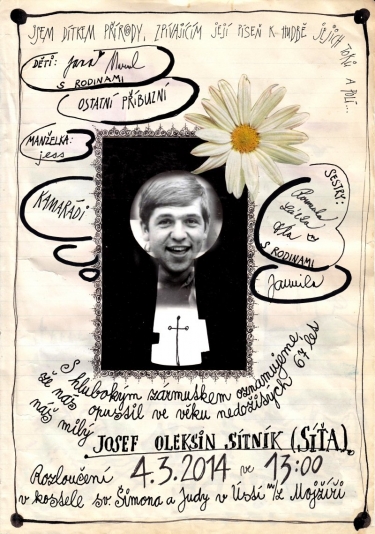 JSEM DÍTKEM PŘÍRODY, ZPÍVAJÍCÍM JEJÍ PÍSEŇ K HUDBĚ JEJÍCH TOKŮ A POLÍ...
DĚTI:
S RODINAMI
OSTATNÍ PŘÍBUZNÍ
MANŽELKA:
jess
KAMARÁDI
SESTRY:
Romula
S RODINAMI
Jarmila
S hlubokým zármutkem oznamujeme,
že nás opustil ve věku nedožitých 67 let
náš milý
JOSEF OLEKSIN SÍTNÍK (SÍŤA).
Rozloučení 4.3.2014 ve 13:00
v kostele sv. Šimona a Judy v Ústí n/L Mojžíři